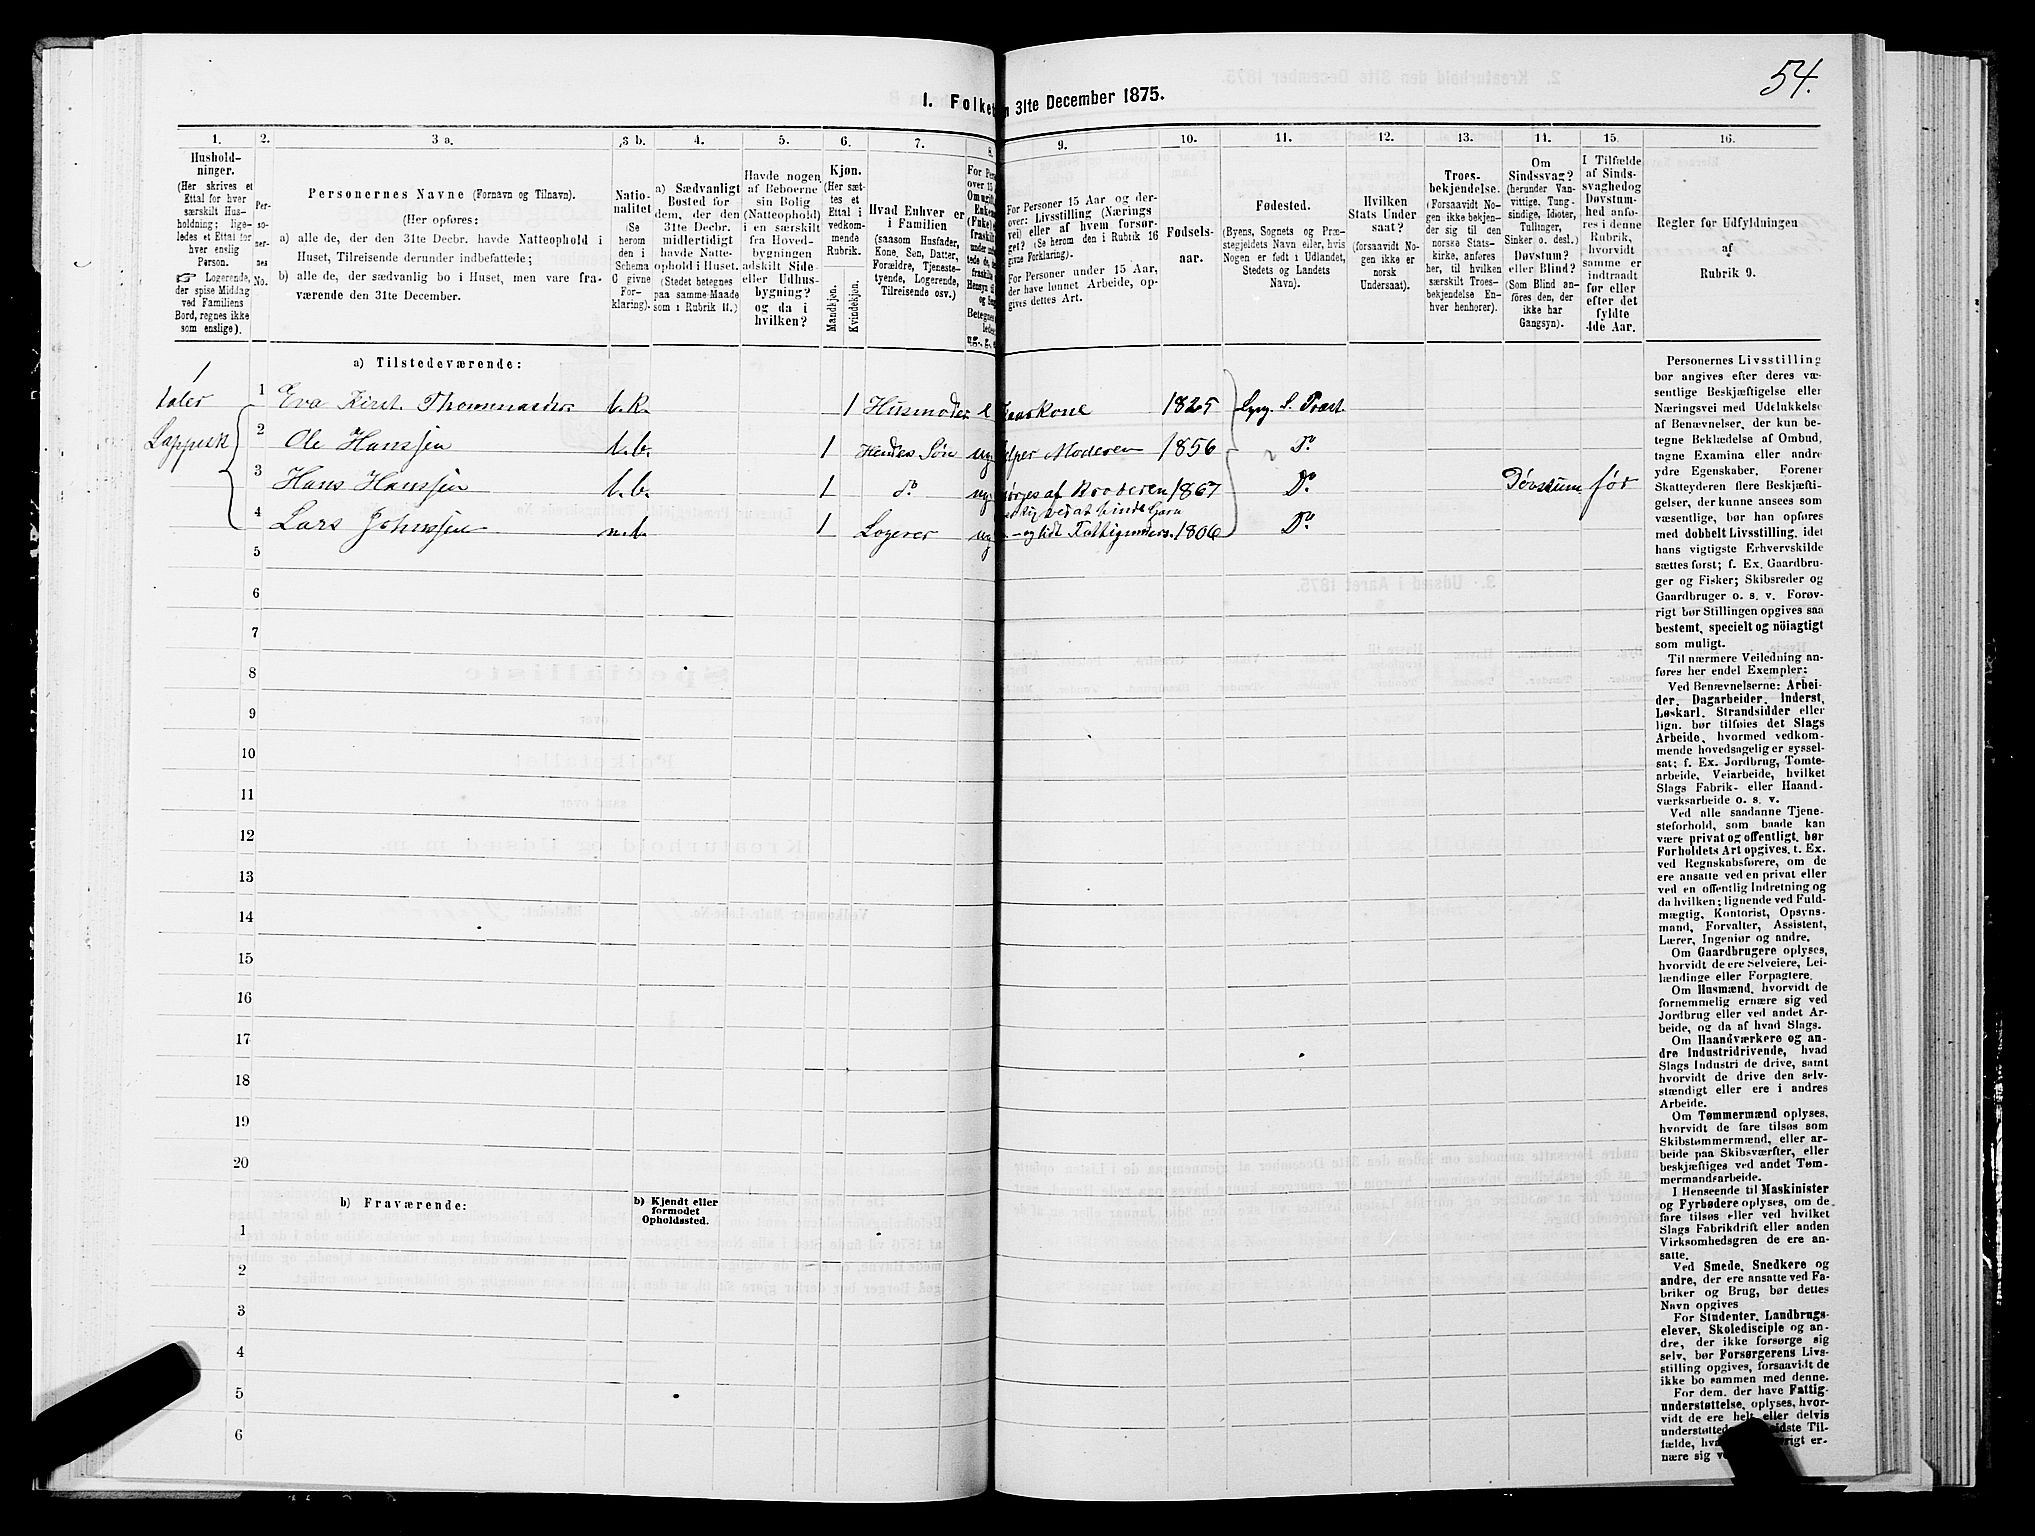 54.
1. Folket
n 31te December 1875.
1. 2. 3 a. 3 b. 4. 5. 6. 7. 8. 9. 10. 11. 12. 13. 14. 15. 16.
Hushold-
ninger.
(Her skrives et
Ettal for hver
særskilt Hus-
holdning; lige-
ledes et Ettal for
hver enslig
Person.
☞ Logerende,
der spise Middag
ved Familiens
Bord, regnes ikke
som enslige).
Per-
so-
ner-
nes
No.
Personernes Navne (Fornavn og Tilnavn).
(Her opføres:
a) alle de, der den 31te Decbr. havde Natteophold i
Huset, Tilreisende derunder indbefattede;
b) alle de, der sædvanlig bo i Huset, men vare fra-
værende den 31te December.
Natio-
nalitet
(Se
herom
den i
Schema
C givne
For-
klaring).
a) Sædvanligt
Bosted for
dem, der den
31te Decbr.
midlertidigt
havde Natte-
ophold i Huset.
(Stedet betegnes
paa samme Maade
som i Rubrik 11.)
Havde nogen
af Beboerne
sin Bolig
(Natteophold)
i en særskilt
fra Hoved-
bygningen
adskilt Side-
eller Udhus-
bygning?
og da i
hvilken?
Kjøn.
(Her sæt-
tes et
Ettal i
vedkom-
mende
Rubrik.
Mandkjøn.
Kvindekjøn.
Hvad Enhver er
i Familien
(saasom Husfader,
Kone, Søn, Datter,
Forældre, Tjeneste-
tyende, Logerende,
Tilreisende osv.)
For Personer 15 Aar og der-
over: Livsstilling (Nærings-
vei) eller af hvem forsør-
get? (Se herom den i Rubrik 16
givne Forklaring).
For Personer under 15 Aar,
der have lønnet Arbeide, op-
gives dettes Art.
Fødsels-
aar.
Fødested.
(Byens, Sognets og Præste-
gjeldets Navn eller, hvis
Nogen er født i Udlandet,
Stedets og Landets
Navn).
Hvilken
Stats Under-
saat?
(forsaavidt No-
gen ikke er
norsk
Undersaat).
Troes-
bekjendelse.
(Forsaavidt No-
gen ikke bekjen-
der sig til den
norske Stats-
kirke, anføres
her, til hvilken
særskilt Troes-
bekjendelse En-
hver henhører).
Om
Sindssvag?
(herunder Van-
vittige, Tung-
sindige, Idioter,
Tullinger,
Sinker o. desl.)
Døvstum?
eller Blind?
(Som Blind an-
føres den, der
ikke har
Gangsyn).
I Tilfælde
af Sinds-
svaghed og
Døvstum-
hed anfø-
res i denne
Rubrik,
hvorvidt
samme er
indtraadt
før eller
efter det
fyldte
4de Aar.
Regler for Udfyldningen
af
Rubrik 9.
a) Tilstedeværende:
1
taler
Lappisk
1 Eva Kirst. Thommasdtr. b.k. 1 Husmoder e Gaardkone 1825 Lyng. S. Præst.
2 Ole Hanssen b.b. 1 Hendes Søn ug. Moderen 1856 Do
3 Hans Hanssen b.b. 1 do ug. af Broderen 1867 Do Døvstum før
4 Lars Johnssen n.l. 1 Logerer ug
ved at binde Garn
og lidt Fattigunders. 1806 Do
5
6
7
8
9
10
11
12
13
14
15
16
17
18
19
20
b) Fraværende:
b) Kjendt eller
formodet
Opholdssted.
1
2
3
4
5
6
Personernes Livsstilling
bør angives efter deres væ-
sentlige Beskjæftigelse eller
Næringsvei med Udelukkelse
af Benævnelser, der kun be-
tegne Beklædelse af Ombud,
tagne Examina eller andre
ydre Egenskaber. Forener
Skatteyderen flere Beskjæfti-
gelser, der kunne ansees som
væsentlige, bør han opføres
med dobbelt Livsstilling, idet
hans vigtigste Erhvervskilde
sættes først; f. Ex. Gaardbru-
ger og Fisker; Skibsreder og
Gaardbruger o. s. v. Forøv-
rigt bør Stillingen opgives saa
bestemt, specielt og nöiagtigt
som muligt.
Til nærmere Veiledning an-
føres her endel Exempler:
Ved Benævnelserne: Arbei-
der, Dagarbeider, Inderst,
Løskarl, Strandsidder eller
lign. bør tilføies det Slags
Arbeide, hvormed vedkom-
mende hovedsagelig er syssel-
sat; f. Ex. Jordbrug, Tomte-
arbeide, Veiarbeide, hvilket
Slags Fabrik- eller Haand-
værksarbeide o. s. v.
Ved alle saadanne Tjene-
steforhold, som baade kan
være privat og offentligt, bør
Forholdets Art opgives, t. Ex.
ved Regnskabsførere, om de
ere ansatte ved en privat eller
ved en offentlig Indretning og
da hvilken; lignende ved Fuld-
mægtig, Kontorist, Opsyns-
mand, Forvalter, Assistent,
Lærer, Ingeniør og andre.
Om Gaardbrugere oplyses,
hvorvidt de ere Selveiere, Lei-
lændinge eller Forpagtere.
Om Husmænd, hvorvidt de
fornemmelig ernære sig ved
Jordbrug eller ved andet Ar-
beide, og da af hvad Slags.
Om Haandværkere og an-
dre Industridrivende, hvad
Slags Industri de drive, samt
hvorvidt de drive den selv-
stændigt eller ere i andres
Arbeide.
Om Tømmermænd oplyses,
hvorvidt de fare tilsøs som
Skibstømmermænd, eller ar-
beide paa Skibsværfter, eller
beskjæftiges ved andet Tøm-
mermandsarbeide.
I Henseende til Maskinister
og Fyrbødere oplyses, om de
fare tilsøs eller ved hvilket
Slags Fabrikdrift eller anden
Virksomhedsgren de ere an-
satte.
Ved Smede, Snedkere og
andre, der ere ansatte ved Fa-
briker og Brug, bør dettes
Navn opgives
For Studenter, Landbrugs-
elever, Skoledisciple og an-
dre, der ikke forsørge sig
selv, bør Forsørgerens Livs-
stilling opgives, forsaavidt de
ikke bo sammen med denne.
For dem, der have Fattig-
understøttelse, oplyses, hvor-
vidt de ere helt eller delvis